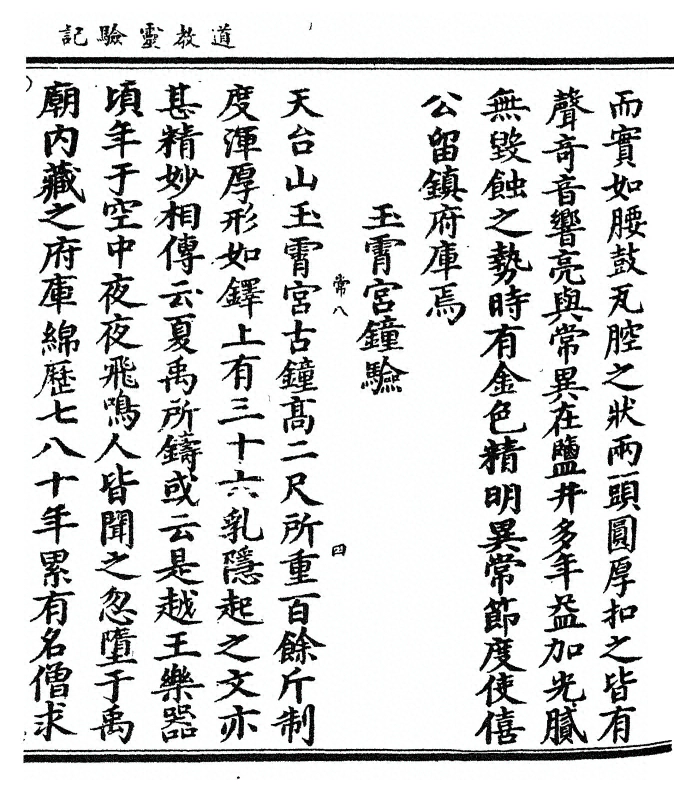 道教靈驗記
而實如腰鼓瓦腔之狀兩頭圓厚扣之皆有
聲奇音響亮與常異在鹽井多年益加光膩
無毀蝕之勢時有金色精明異常節度使僖
公留鎮府庫焉
玉霄宮鐘驗
常八
四
天台山玉霄宮古鐘高二尺所重百餘斤制
度渾厚形如鐸上有三十六乳隱起之文亦
甚精妙相傳云夏禹所鑄或云是越王樂器
頃年于空中夜夜飛鳴人皆聞之忽墮于禹
廟內藏之府庫綿歷七八十年累有名僧求